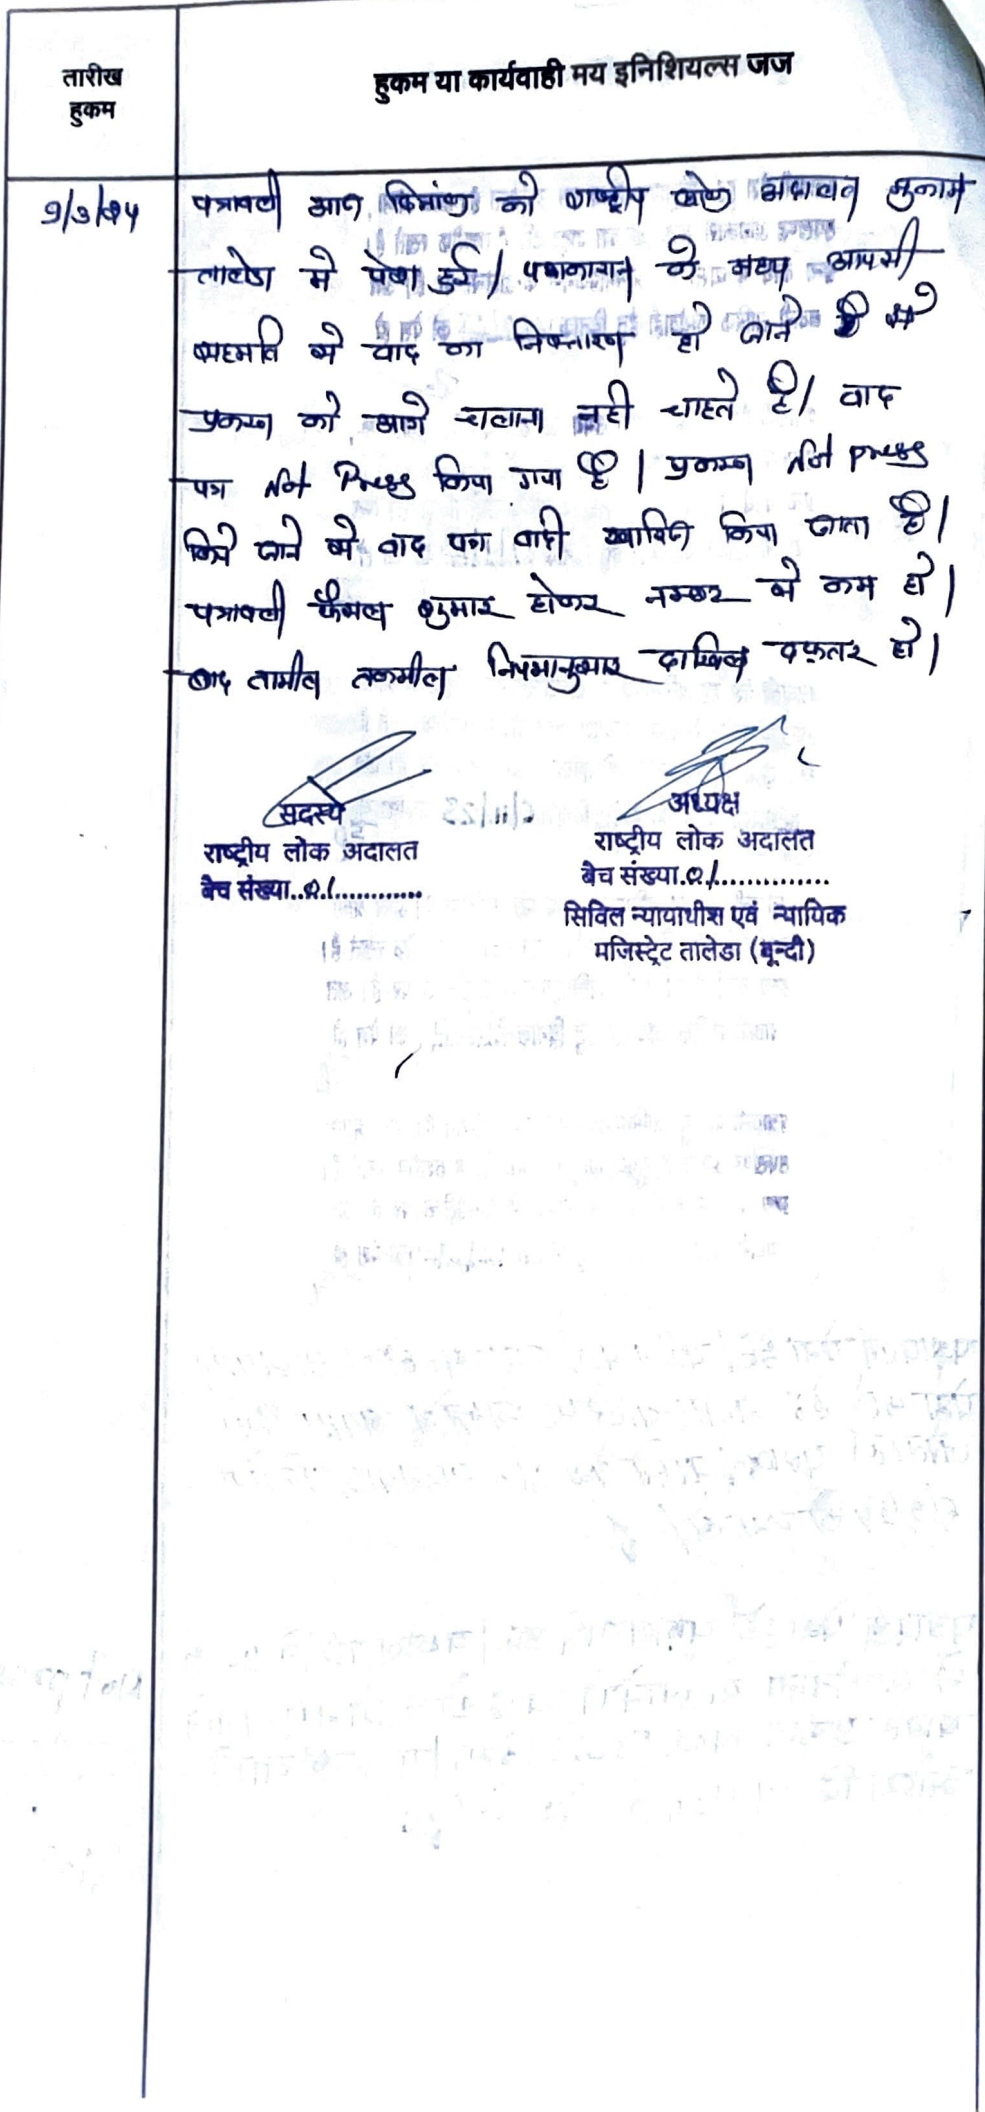 तारीख
हुकम
हुकम या कार्यवाही मय इनिशियल्स जज
9/3/24
पत्रावली आज दिनांक को राष्ट्रीय लोक अदालत मुकाम
तालेडा मे पेश हुई। पक्षकारान के मध्य आपसी
सहमति से वाद का निस्तारण हो जाने से
प्रकरण को आगे चलाना नही चाहते है। वाद
पत्र Not Press किया गया है। प्रकरण Not press
किये जाने से वाद पत्र वादी खारिज किया जाता है।
पत्रावली फैसल शुमार होकर नम्बर से कम हो।
बाद तामील तकमील नियमानुसार दाखिल दफ़्तर हो।
सदस्य
राष्ट्रीय लोक अदालत
बेच संख्या..01............
अध्यक्ष
राष्ट्रीय लोक अदालत
बेच संख्या.01..............
सिविल न्यायाधीश एवं न्यायिक
मजिस्ट्रेट तालेडा (बून्दी)